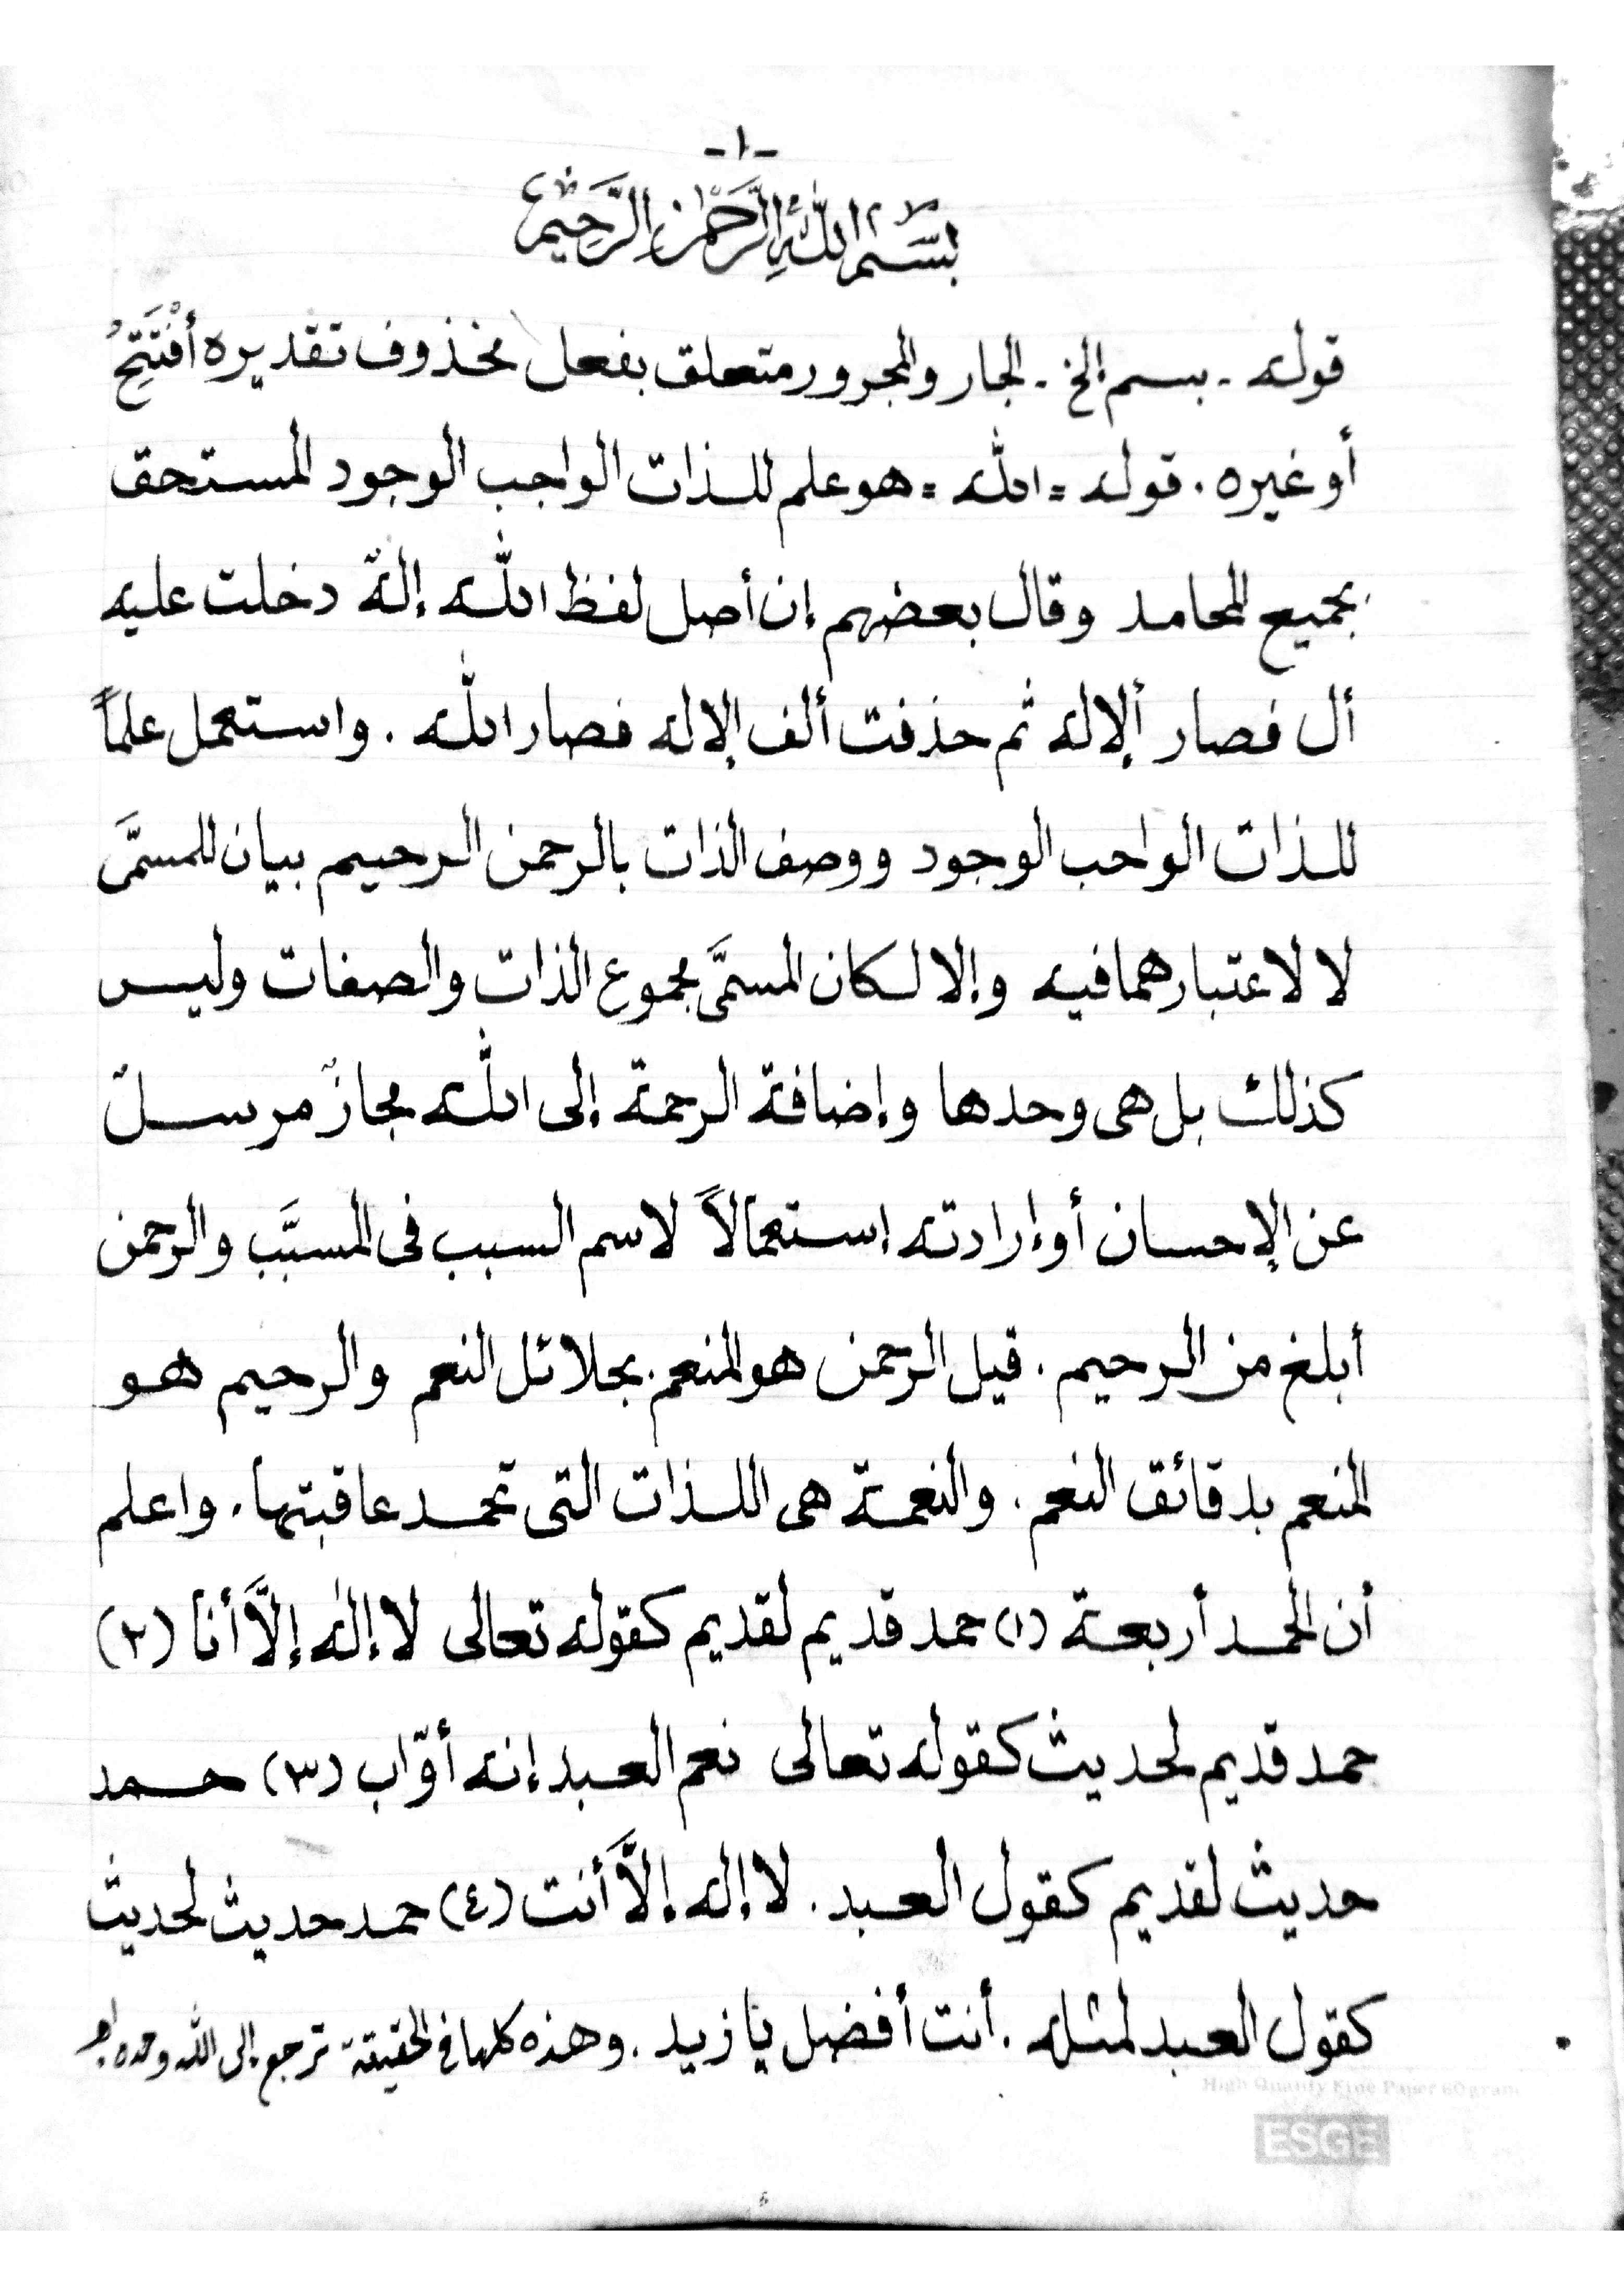 -١-
بِسْمِ اللهِ الرَّحْمٰنِ الرَّحِيمِ
قوله - بسم إلخ - الجار والمجرور متعلق بفعل مخذوف تقديره أفْتَتِحُ
أو غيره . قوله = الله = هو علم للذات الواجب الوجود المستحق
بجميع المحامد وقال بعضهم إن أصل لفظ الله إلهٌ دخلت عليه
أل فصار ألإله ثم حذفت ألف الإله فصار الله . واستعمل علماً
للذات الواجب الوجود ووصف الذات بالرحمن الرحيم بيان للمسمَّى
لا لاعتبارهما فيه وإلا لكان المسمَّى مجموع الذات والصفات وليس
كذلك بل هى وحدها وإضافة الرحمة إلى الله مجازٌ مرسلٌ
عن الإحسان أو إرادته إستعمالاً لاسم السبب فى المسبَّب والرحمن
أبلغ من الرحيم . قيل الرحمن هو المنعم بجلائل النعم والرحيم هو
المنعم بدقائق النعم . والنعمة هى اللذات التى تحمد عاقبتها . واعلم
أن الحمد أربعة (١) حمد قديم لقديم كقوله تعالى لا إلٰه إلاَّ أنا (٢)
حمد قديم لحديث كقوله تعالى نعم العبد إنه أوّاب (٣) حمد
حديث لقديم كقول العبد . لا إله إلاَّ أنت (٤) حمد حديث لحديث
كقول العبد لمثله . أنت أفضل يا زيد . وهذه كلها فى الحقيقة ترجع إلى الله وحده اهـ
High Quality Fine Paper 60 gram
ESGE